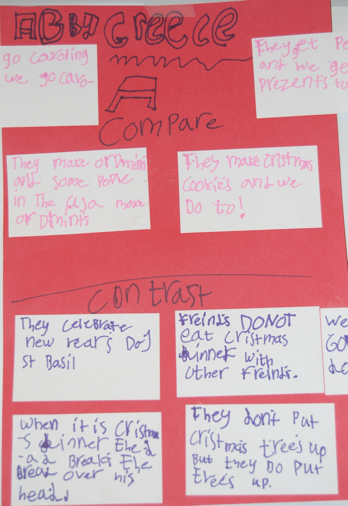 ABBY Greece
go caroling
we go caro-
They get Pe
and we ge
Prezents to
Compare
They make ordmints
and some PoPle
in The usa make
or Dmints
They make Cristmas
Cookies and we
Do to!
Contrast
They celebrate
new years Day
St Basil
Freinds DO NOT
eat Cristmas
dinner with
other Freinds.
we
Go
do
When it is Cristma
-s dinner The d
-ad Breaks The
Bread over his
head.
They don't Put
Cristmas trees up
But they Do Put
trees up.